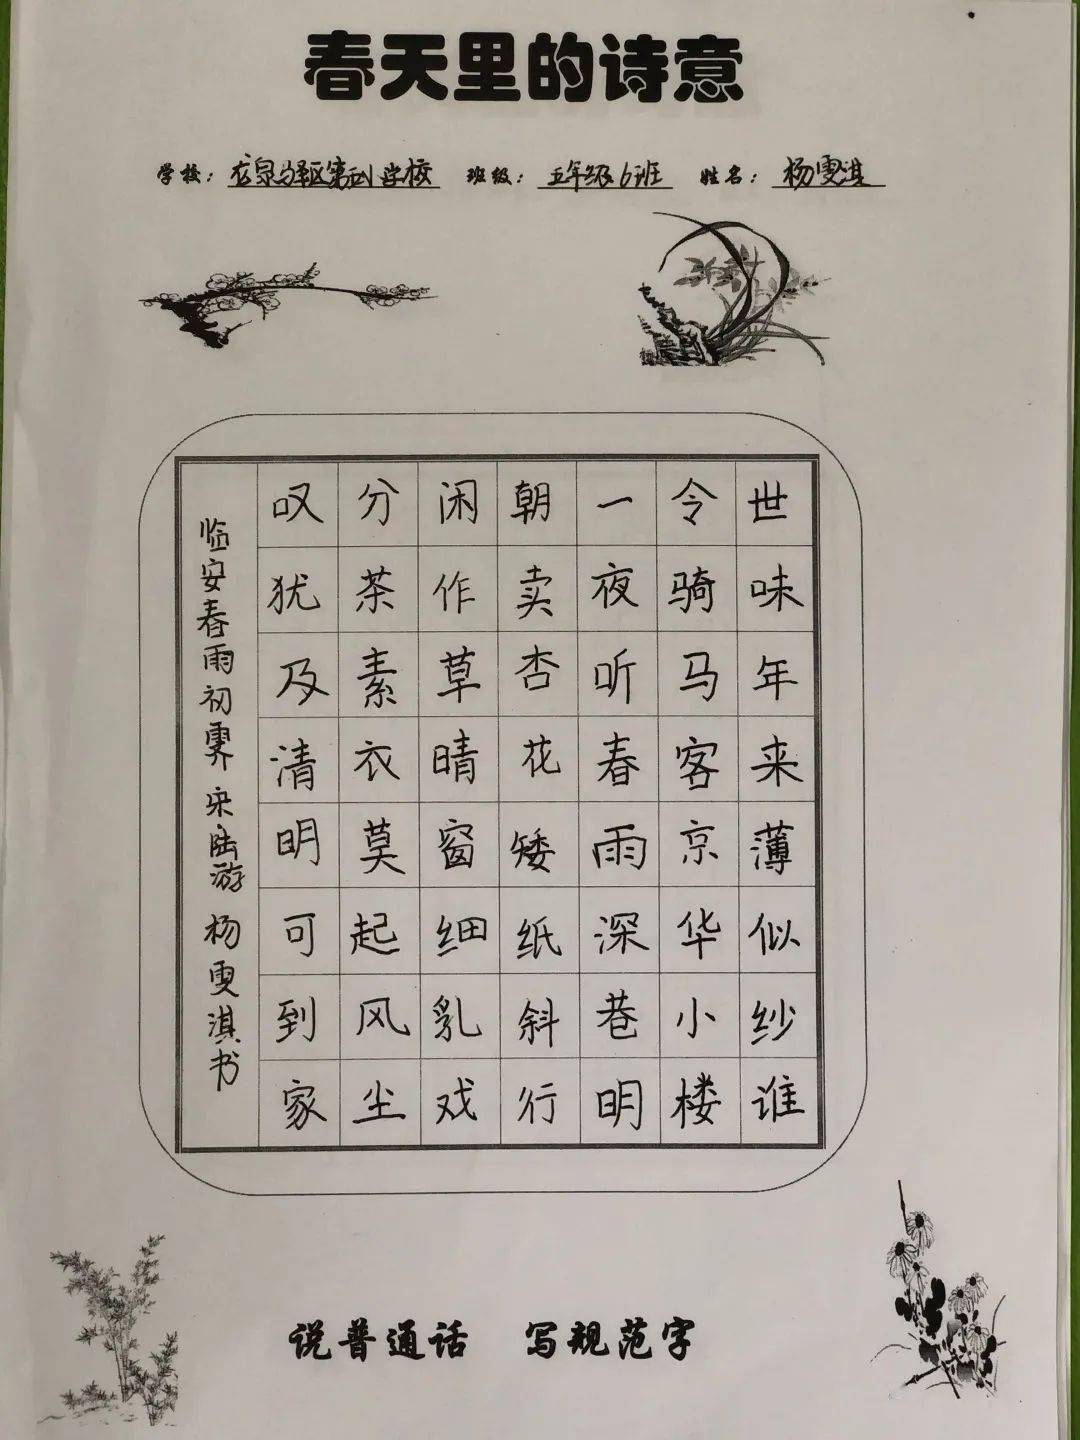 春天里的诗意
学校：龙泉驿区第小学校 班级：五年级6班 姓名：杨雯淇
世味年来薄似纱谁
令骑马客京华小楼
一夜听春雨深巷明
朝卖杏花矮纸斜行
闲作草晴窗细乳戏
分茶素衣莫起风尘
叹犹及清明可到家
临安春雨初霁 宋 陆游 杨雯淇书
说普通话 写规范字